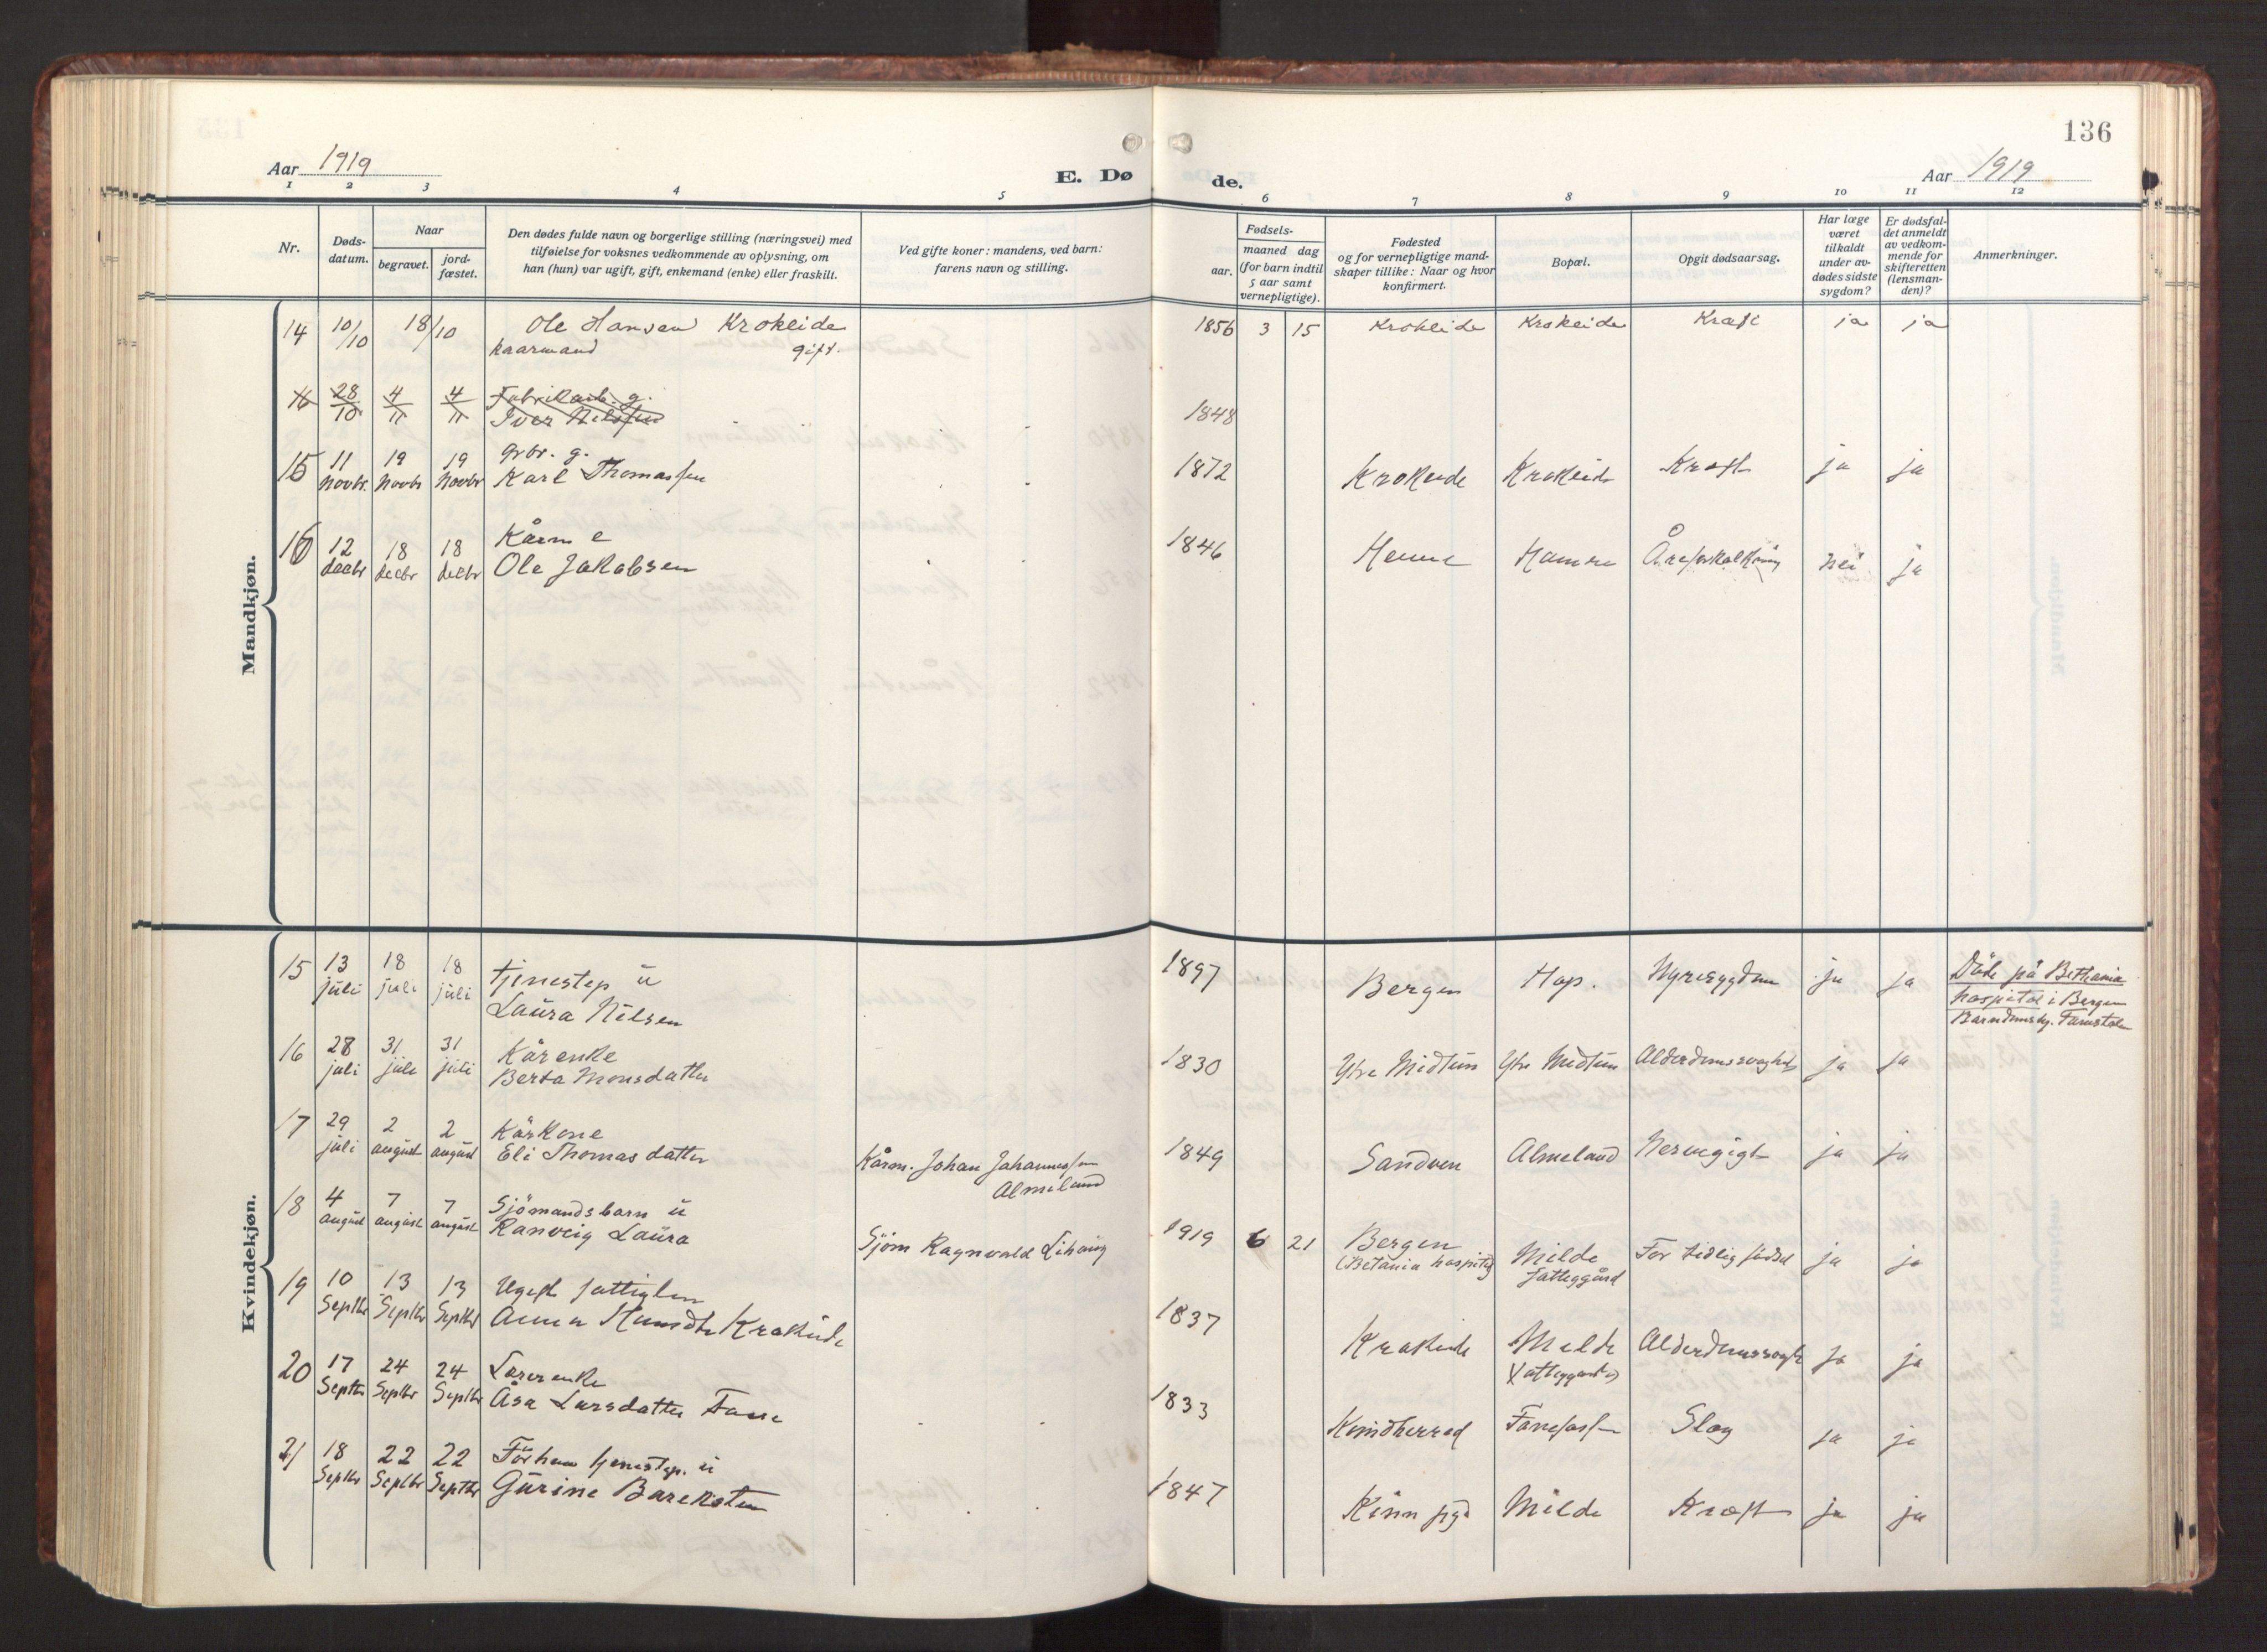 136
Aar 1919
E. Dø
de.
Aar 1919
1 2 3 4 5 6 7 8 9 10 11 12
Nr.
Døds-
datum.
Naar
begravet.
jord-
fæstet.
Den dødes fulde navn og borgerlige stilling (næringsvei) med
tilføielse for voksnes vedkommende av oplysning, om
han (hun) var ugift, gift, enkemand (enke) eller fraskilt.
Ved gifte koner: mandens, ved barn:
farens navn og stilling.
Fødsels-
aar.
maaned dag
(for barn indtil
5 aar samt
vernepligtige).
Fødested
og for vernepligtige mand-
skaper tillike: Naar og hvor
konfirmert.
Bopæl.
Opgit dødsaarsag.
Har læge
været
tilkaldt
under av-
dødes sidste
sygdom?
Er dødsfal-
det anmeldt
av vedkom-
mende for
skifteretten
(lensman-
den)?
Anmerkninger.
Mandkjøn.
14 10/10 18/10 Ole Hansen Krokeide 1856 3 15 Krokeide Krokeide Kræft ja ja
kaarmand gift.
16 28/10 4/11 4/11 Fabrikarb. g.
Iver Nilssen 1848
15 11 19 19 grbr. g.
Novbr. Novbr Novbr Karl Thomassen 1872 Krokeide Krokeide Kræft ja ja
16 12 18 18 Kårm e
decbr decbr decbr Ole Jakobsen 1846 Hamre Åreforkalkning nei ja
Kvindekjøn.
15 13 18 18 tjenestep u
juli juli juli Laura Nilsen 1897 Bergen Hop. Nyresygdom ja ja Døde på Bethania
hospital i Bergen
16 28 31 31 Kårenke
juli juli juli Berta Monsdatter 1830 Ytre Midtun Ytre Midtun Alderdomssvaghet ja ja
17 29 2 2 Kårkone
juli august august Eli Thomasdatter Kårm. Johan Johannessen
Almeland 1849 Sandven Almeland Nervegigt ja ja
18 4 7 7 Sjömandsbarn u
august august august Ranveig Laura Sjöm Ragnvald 1919 6 21 Bergen
(Betania hospital) Milde
fattiggård For tidlig födsel ja ja
19 10 13 13 Ugift fattiglem
Septbr Septbr Septbr Anna Krokeide 1837 Krokeide Milde
(fattiggård) Alderdomssvagh ja ja
20 17 24 24 Lærerenke
Septbr Septbr Septbr Åsa Larsdatter Fane 1833 Kvindherred Slag ja ja
21 18 22 22 Forhen tjenestep. u
Septbr Septbr Septbr Gurine Bareksten 1847 Kinn Milde Kræft ja ja